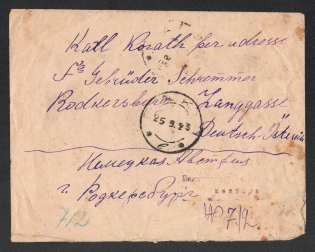 Kath Korath per adresse
Fa Gebrüder Schremmer
Radkersburg Langgasse
Deutsch-Österreich
25.9.23
Немецкая Австрия
г. Радкерсбург
7/2
№ 7/2